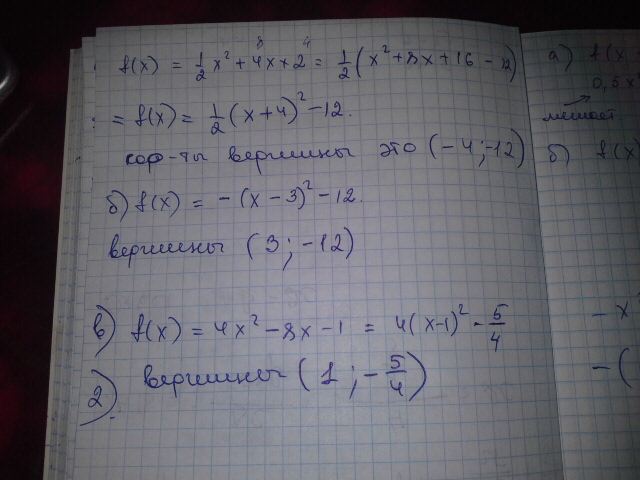 f(x) = 1/2 x² + 4x + 2 = 1/2 (x² + 8x + 16 - 12)
= f(x) = 1/2 (x+4)² - 12.
вершины это (-4; -12)
б) f(x) = -(x-3)² - 12.
вершины (3; -12)
в) f(x) = 4x² - 8x - 1 = 4(x-1)² - 5/4
вершины (1; -5/4)
2).
а) f(x
0,5x
мешает
б) f(x)
-x
-(